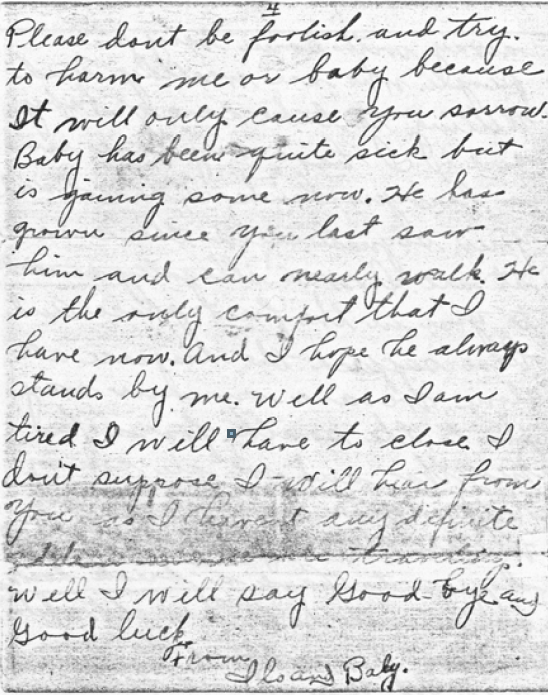 4
Please dont be foolish and try.
to harm me or baby because
It will only cause you sorrow.
Baby has been quite sick but
is gaining some now. He has
grown since you last saw
him and can nearly walk. He
is the only comfort that I
have now. And I hope he always
stands by me. Well as I am
tired I will have to close I
don't suppose I will hear from
you as I havent any definite
traveling.
Well I will say Good-bye and
Good luck
From
and Baby.